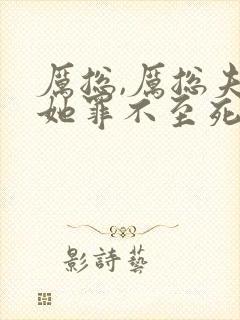 厲總,厲總夫
她罪不至死
影詩藝